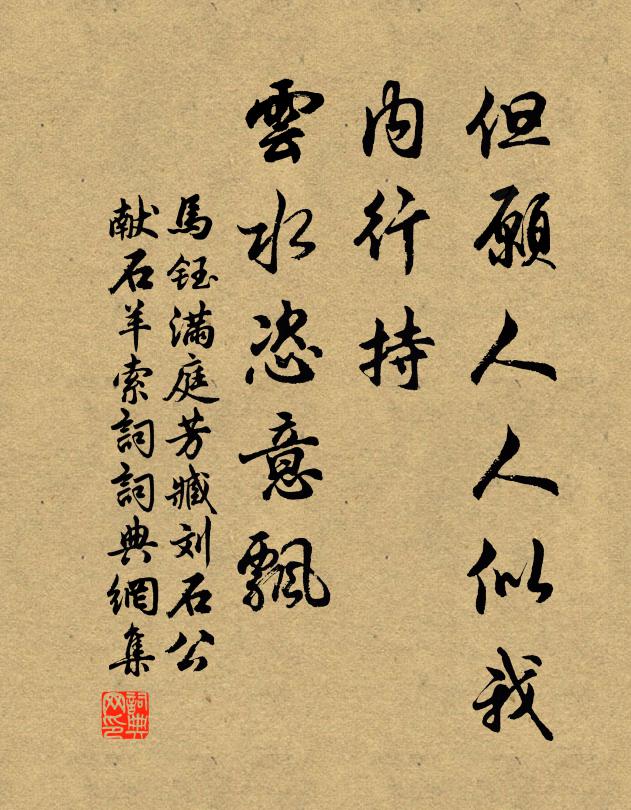 但願人人似我
內行持
雲水恣意飄
馬鈺滿庭芳臧刘石公
献石羊索詞詞典網集
詞典
网印